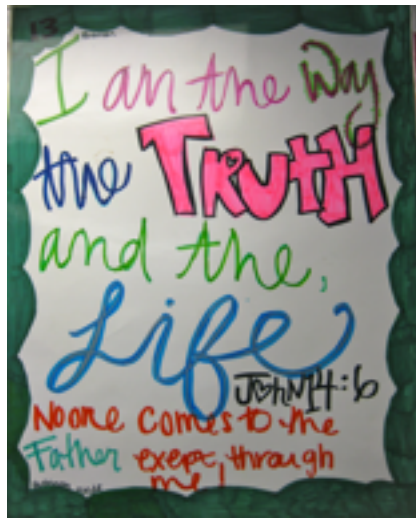 13
I am the Way
the TRUTH
and the,
Life
JohN14:6
No one comes to the
Father exept, through
me!